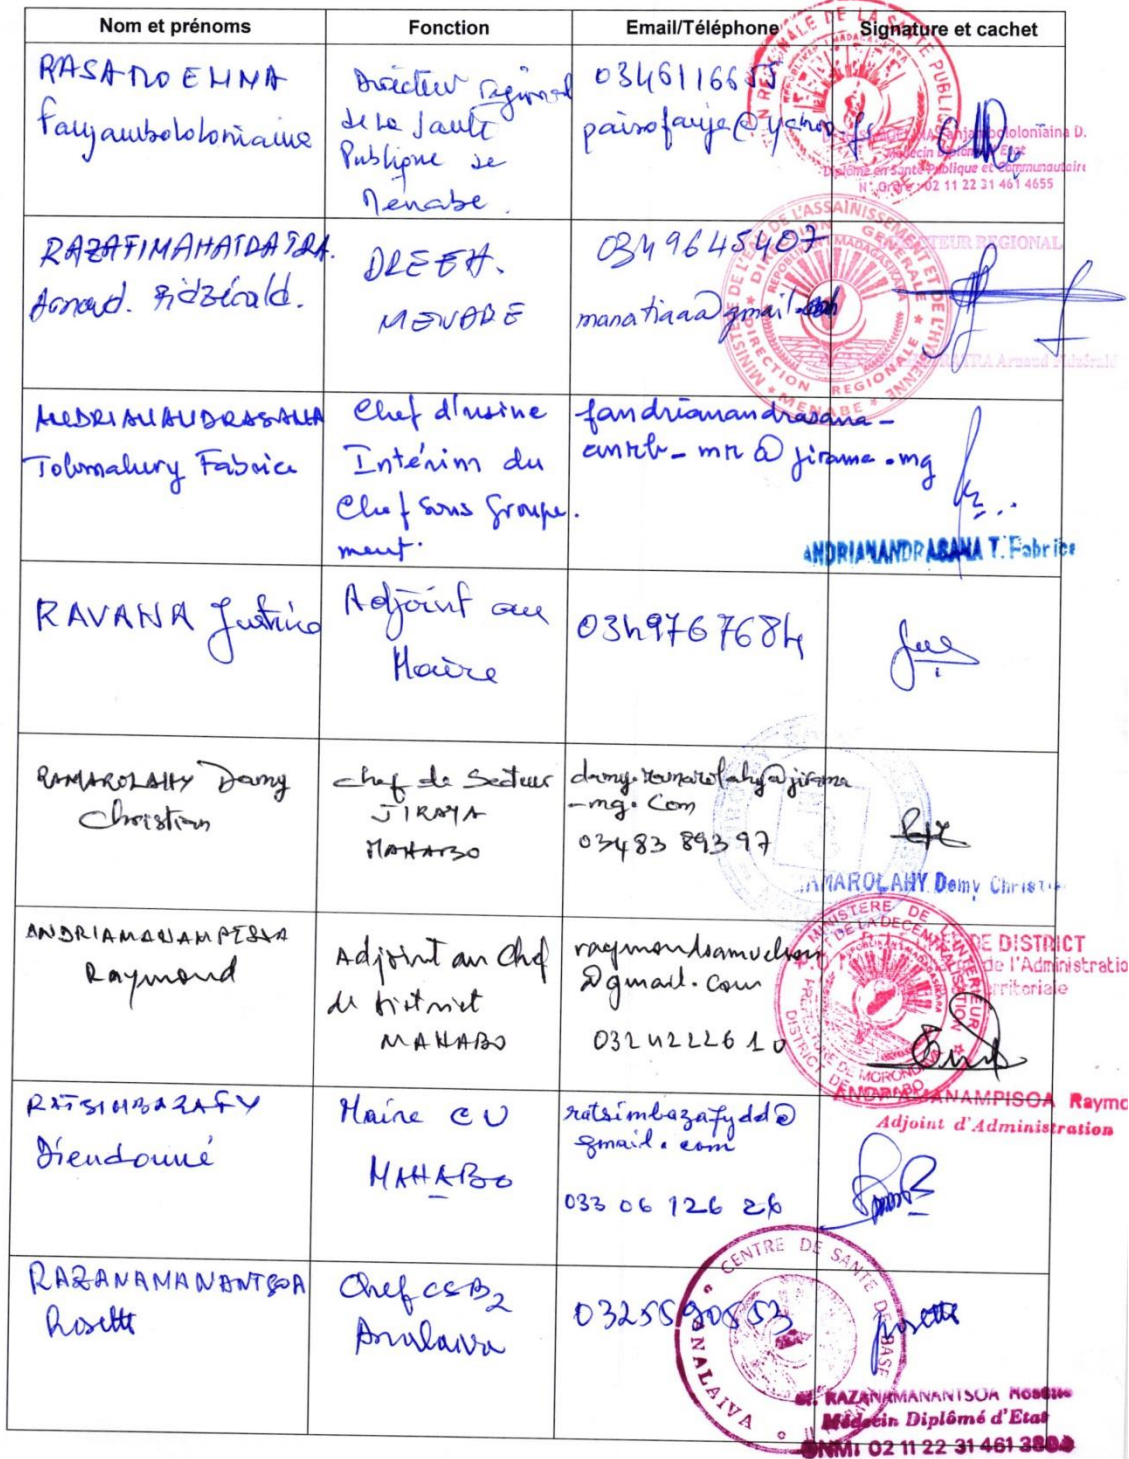 Nom et prénoms Fonction Email/Téléphone Signature et cachet
RASAMOELINA
Fanjambololoniaina
Directeur régional
de la Santé
Publique de
Menabe.
03461166
N° Ordre : 02 11 22 31 461 4655
Médecin Diplômé d'Etat
Diplômé en Santé Publique et Communautaire
RAZAFIMAHATRATRA
Arnaud. Fidzérald.
DREEH.
MENABE
0349645407
manatiaaa@gmail.com
MINISTERE DE L'EAU DE L'ASSAINISSEMENT ET DE L'HYGIENNE
DIRECTION GENERALE
REPOBLIKAN'I MADAGASIKARA
DIRECTION REGIONALE
MENABE
REGIONAL
ANDRIANANDRASANA
Tolomahery Fabrice
Chef d'usine
Intérim du
Chef Sous Groupe.
ment.
fandrianandrasana-
@jirama.mg
ANDRIANANDRASANA T. Fabrice
RAVANA Justine
Adjoint au
Maire
0349767684
RAMAROLAHY Damy
Christian
Chef de Secteur
JIRAMA
MAHABO
damy.ramarolahy@jirama
-mg.com
03483 89397
RAMAROLAHY Damy Christian
ANDRIAMANAMPISOA
Raymond
Adjoint au Chef
de District
MAHABO
raymondsamuelson
@gmail.com
0324222610
MINISTERE DE L'INTERIEUR
ET DE LA DECENTRALISATION
PREFECTURE DE MORONDAVA
DISTRICT DE MAHABO
DE DISTRICT
de l'Administration
Territoriale
ANDRIAMANAMPISOA Raymo
Adjoint d'Administration
RATSIMBAZAFY
Dieudonné
Maire CU
MAHABO
ratsimbazafydd@
gmail.com
033 06 126 26
RAZANAMANANTSOA
Rosette
Chef CSB2
Analaiva
0325590853
Rosette
CENTRE DE SANTE DE BASE
ANALAIVA
RAZANAMANANTSOA Rosette
Médecin Diplômé d'Etat
ONMI 02 11 22 31 461 3804